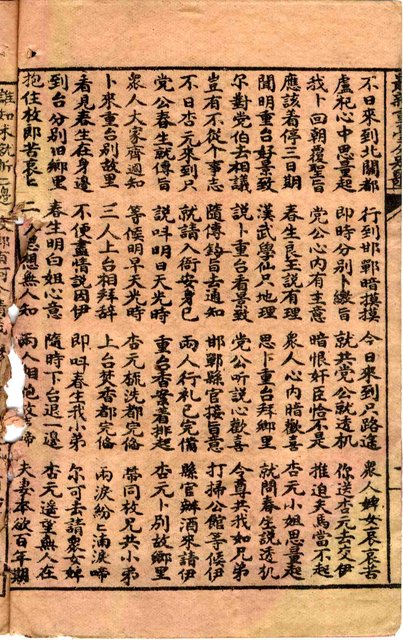 不日來到北關都 行到邯鄲暗摸摸 今日來到只路途 衆人婢女辰哀苦
盧祀心中思量起 即時分別卜繳旨 就共党公就透机 你送杏元去交伊
我卜回朝覆聖旨 党公心內有主意 暗恨奸臣恰不是 推迫天馬當不起
應該着停三日期 春生良玉說有理 衆人心內暗歡喜 杏元小姐思量起
聞明重台好景致 漢武學仙只地理 思卜重台拜鄉里 就問春生說透机
尔對党伯去相議 說卜重台看景致 党公听說心歡喜 今尊共我如兄弟
豈有不從个事志 隨傳鈞旨去通知 邯鄲縣官接旨意 打掃公館等候伊
不日杏元來到只 就請入衙安身已 兩人行礼已完備 縣官辦酒來請伊
党公春生就傳旨 說叫明日天光時 重台香案着排起 杏元卜別故鄉里
衆人大家齊過知 等候明早天光時 杏元梳洗都完俻 帶同枚兄共小弟
卜來重台別故里 三人上台相拜辞 上台焚香都完俻 兩淚紛々滴淚啼
看見春生在身邊 不便盡情說因伊 即叫春生我小弟 尔可去請衆女婢
到台分別旧鄉里 春生明白姐心意 隨時下台退一邊 杏元遙望無人在
抱住枚郎苦哀々 二人思想無人知 兩人相抱哀 啼 夫妻本欲百年期
誰知未就新